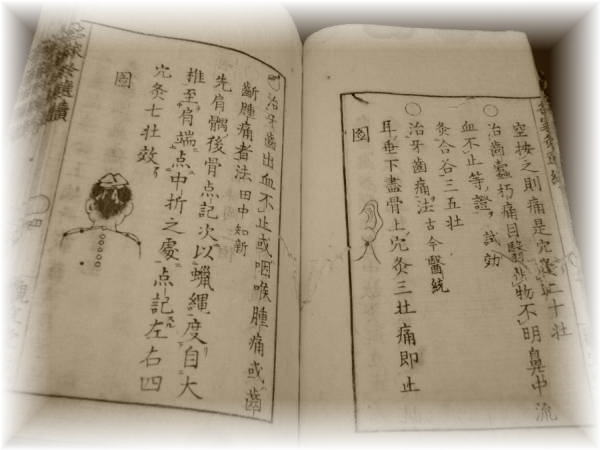 空按之則痛是穴二十壮
○治齒蠹朽痛目翳物不明鼻中流
血不止等證 試効
灸合谷三五壮
○治牙齒痛法 古今醫統
耳垂下盡骨上穴灸三壮痛即止
圖
○治牙齒出血不止或咽喉腫痛或齒
齗腫痛者法 田中知新
先肩髃後骨点記次以蠟縄度自大
椎至肩端点中折之處点記左右四
穴灸七壮效
圖